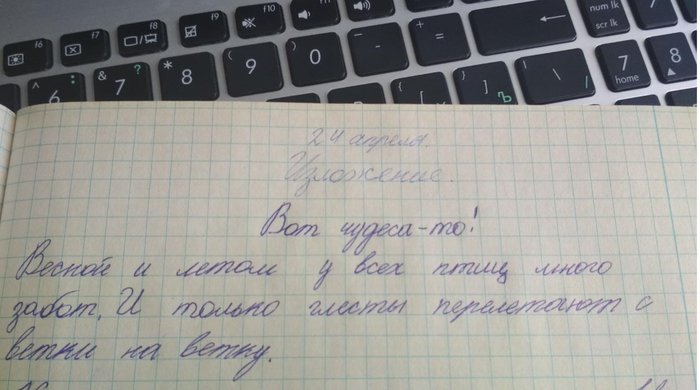 f6 f7 f8 f9 f10 f11 f12
num lk
scr lk
^ 6 : & 7 ? * 8 ( 9 ) 0 - + =
{ [ } ] Ъ | \ / 7 home 8
24 апреля.
Изложение.
Вот чудеса-то!
Весной и летом у всех птиц много
забот. И только глесты перелетают с
ветки на ветку.